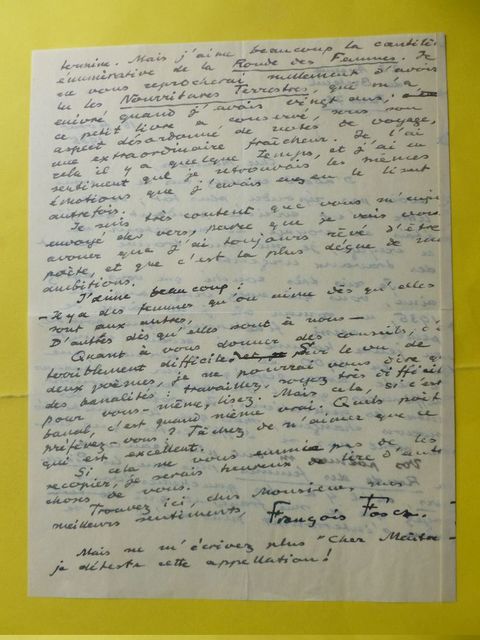 termine. Mais j'aime beaucoup la cantilène
énumérative de la Ronde des Femmes. Je
ne vous reprocherai nullement d'avoir
lu les Nourritures Terrestres, qui m'a
enivré quand j'avais vingt ans;
ce petit livre a conservé, sous son
aspect désordonné de notes de voyage,
une extraordinaire fraîcheur. Je l'ai
relu il y a quelque temps, et j'ai eu
sentiment que je retrouvais les mêmes
émotions que j'avais eues en le lisant
autrefois.
Je suis très content que vous m'ayez
envoyé des vers, parce que je vais vous
avouer que j'ai toujours rêvé d'être
poète, et que c'est la plus déçue de mes
ambitions.
J'aime beaucoup:
- Il y a des femmes qu'on aime dès qu'elles
sont aux autres,
D'autres dès qu'elles sont à nous -
Quant à vous donner des conseils, c'e
terriblement difficile Sur le vu de
deux poèmes, je ne pourrai vous dire q
des banalités: travaillez, soyez très difficile
pour vous-même, lisez. Mais cela, si c'est
banal, c'est quand même vrai. Quels poèt
préférez-vous? Tâchez de n'aimer que ce
qui est excellent.
Si cela ne vous ennuie pas de les
recopier, je serais heureux de lire d'aut
choses de vous.
Trouvez ici, cher Monsieur, mes
meilleurs sentiments
François Fosca.
Mais ne m'écrivez plus "Cher Maître -
je déteste cette appellation!